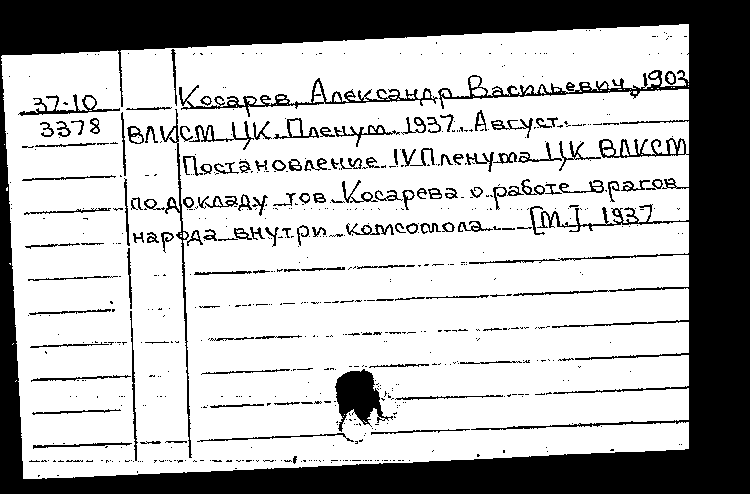 37-10
3378
Косарев, Александр Васильевич, 1903
ВЛКСМ ЦК. Пленум. 1937. Август.
Постановление IV Пленума ЦК ВЛКСМ
по докладу тов. Косарева о работе врагов
народа внутри комсомола. [М.], 1937